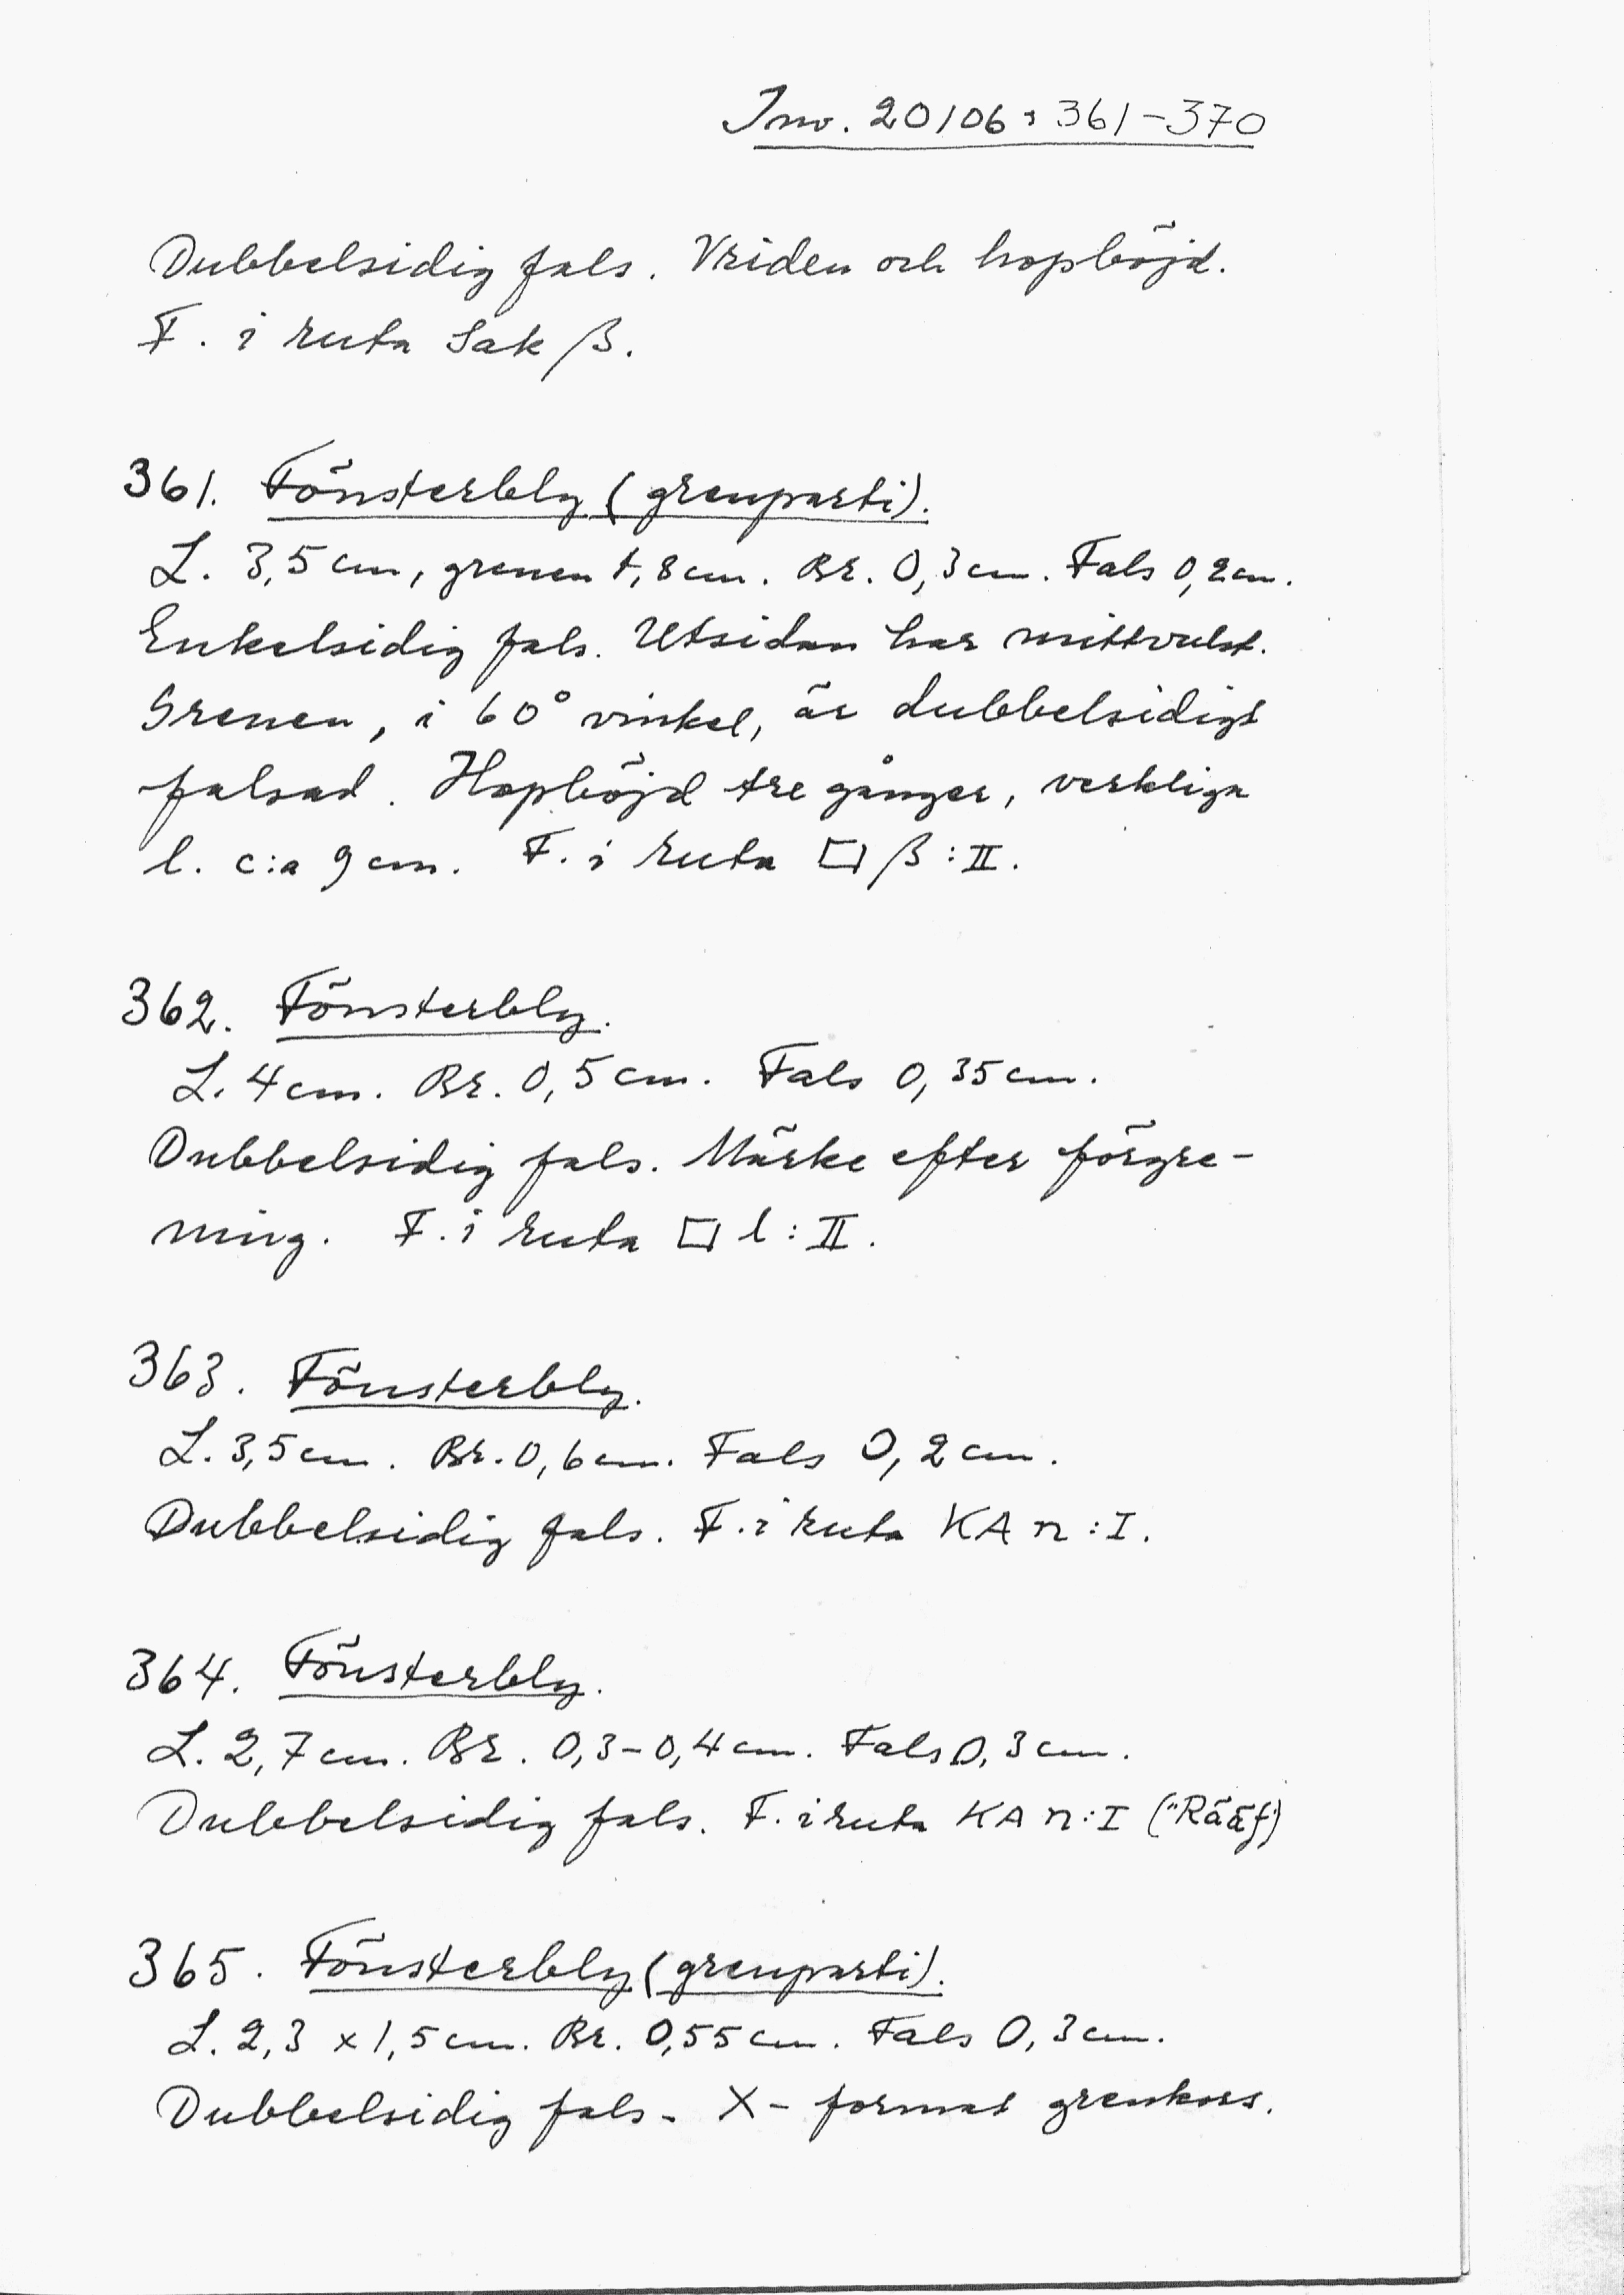 Inv. 20106:361-370
Dubbelsidig fals. Vriden och hopböjd.
F. i ruta Sak β.
361. Fönsterbly (grenparti).
L. 3,5 cm, grenen 1,8 cm. Br. 0,3 cm. Fals 0,2 cm.
Enkelsidig fals. Utsidan har mittvulst.
Grenen, i 60° vinkel, är dubbelsidigt
falsad. Hopböjd tre gånger, verkliga
l. c:a 9 cm. F. i ruta □ β:II.
362. Fönsterbly.
L. 4 cm. Br. 0,5 cm. Fals 0,35 cm.
Dubbelsidig fals. Märke efter förgre-
ning. F. i ruta □ l:II.
363. Fönsterbly.
L. 3,5 cm. Br. 0,6 cm. Fals 0,2 cm.
Dubbelsidig fals. F. i ruta KA n:I.
364. Fönsterbly.
L. 2,7 cm. Br. 0,3-0,4 cm. Fals 0,3 cm.
Dubbelsidig fals. F. i ruta KA n:I ("Rääf")
365. Fönsterbly (grenparti).
L. 2,3 x 1,5 cm. Br. 0,55 cm. Fals 0,3 cm.
Dubbelsidig fals. X-format grenkors.